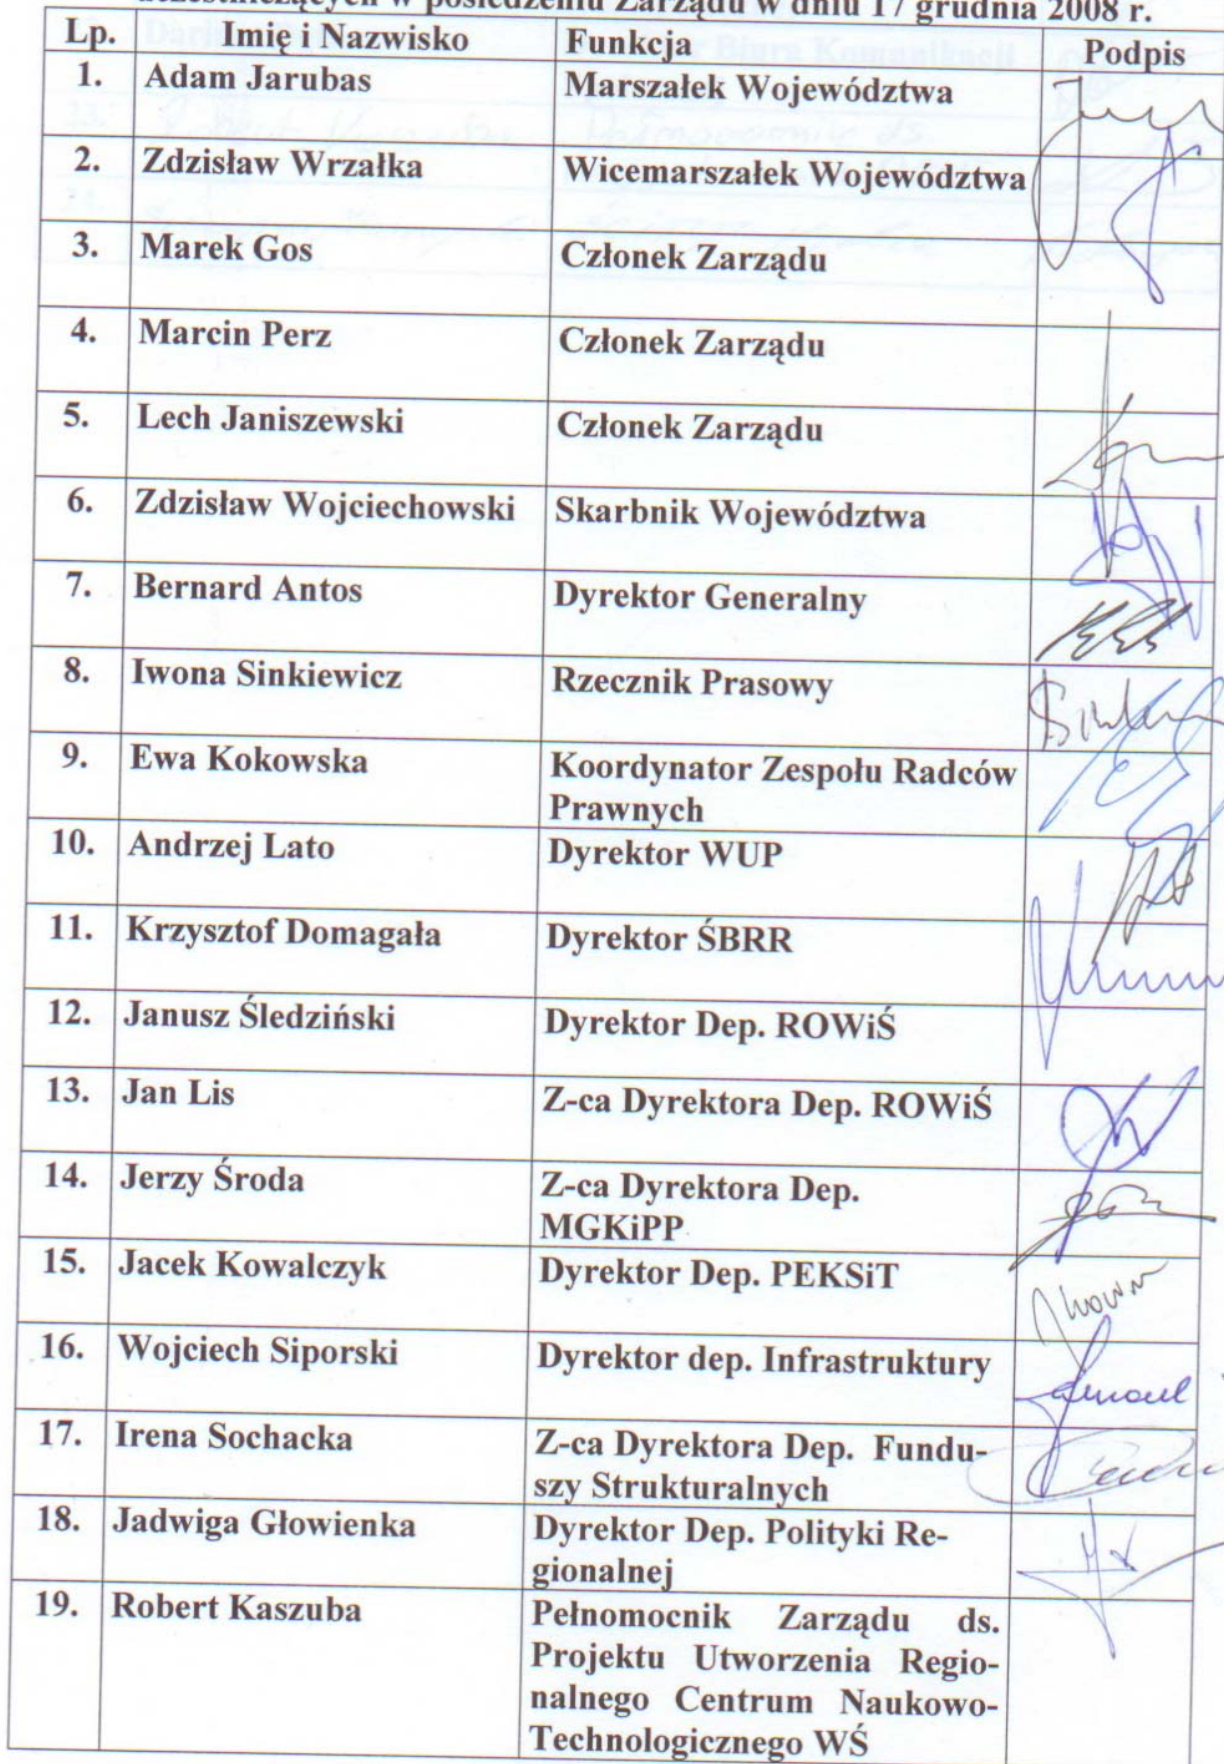 uczestniczących w posiedzeniu Zarządu w dniu 17 grudnia 2008 r.
Lp. Imię i Nazwisko Funkcja Podpis
1. Adam Jarubas Marszałek Województwa
2. Zdzisław Wrzałka Wicemarszałek Województwa
3. Marek Gos Członek Zarządu
4. Marcin Perz Członek Zarządu
5. Lech Janiszewski Członek Zarządu
6. Zdzisław Wojciechowski Skarbnik Województwa
7. Bernard Antos Dyrektor Generalny
8. Iwona Sinkiewicz Rzecznik Prasowy
9. Ewa Kokowska Koordynator Zespołu Radców
Prawnych
10. Andrzej Lato Dyrektor WUP
11. Krzysztof Domagała Dyrektor ŚBRR
12. Janusz Śledziński Dyrektor Dep. ROWiŚ
13. Jan Lis Z-ca Dyrektora Dep. ROWiŚ
14. Jerzy Środa Z-ca Dyrektora Dep.
MGKiPP
15. Jacek Kowalczyk Dyrektor Dep. PEKSiT
16. Wojciech Siporski Dyrektor dep. Infrastruktury
17. Irena Sochacka Z-ca Dyrektora Dep. Fundu-
szy Strukturalnych
18. Jadwiga Głowienka Dyrektor Dep. Polityki Re-
gionalnej
19. Robert Kaszuba Pełnomocnik Zarządu ds.
Projektu Utworzenia Regio-
nalnego Centrum Naukowo-
Technologicznego WŚ